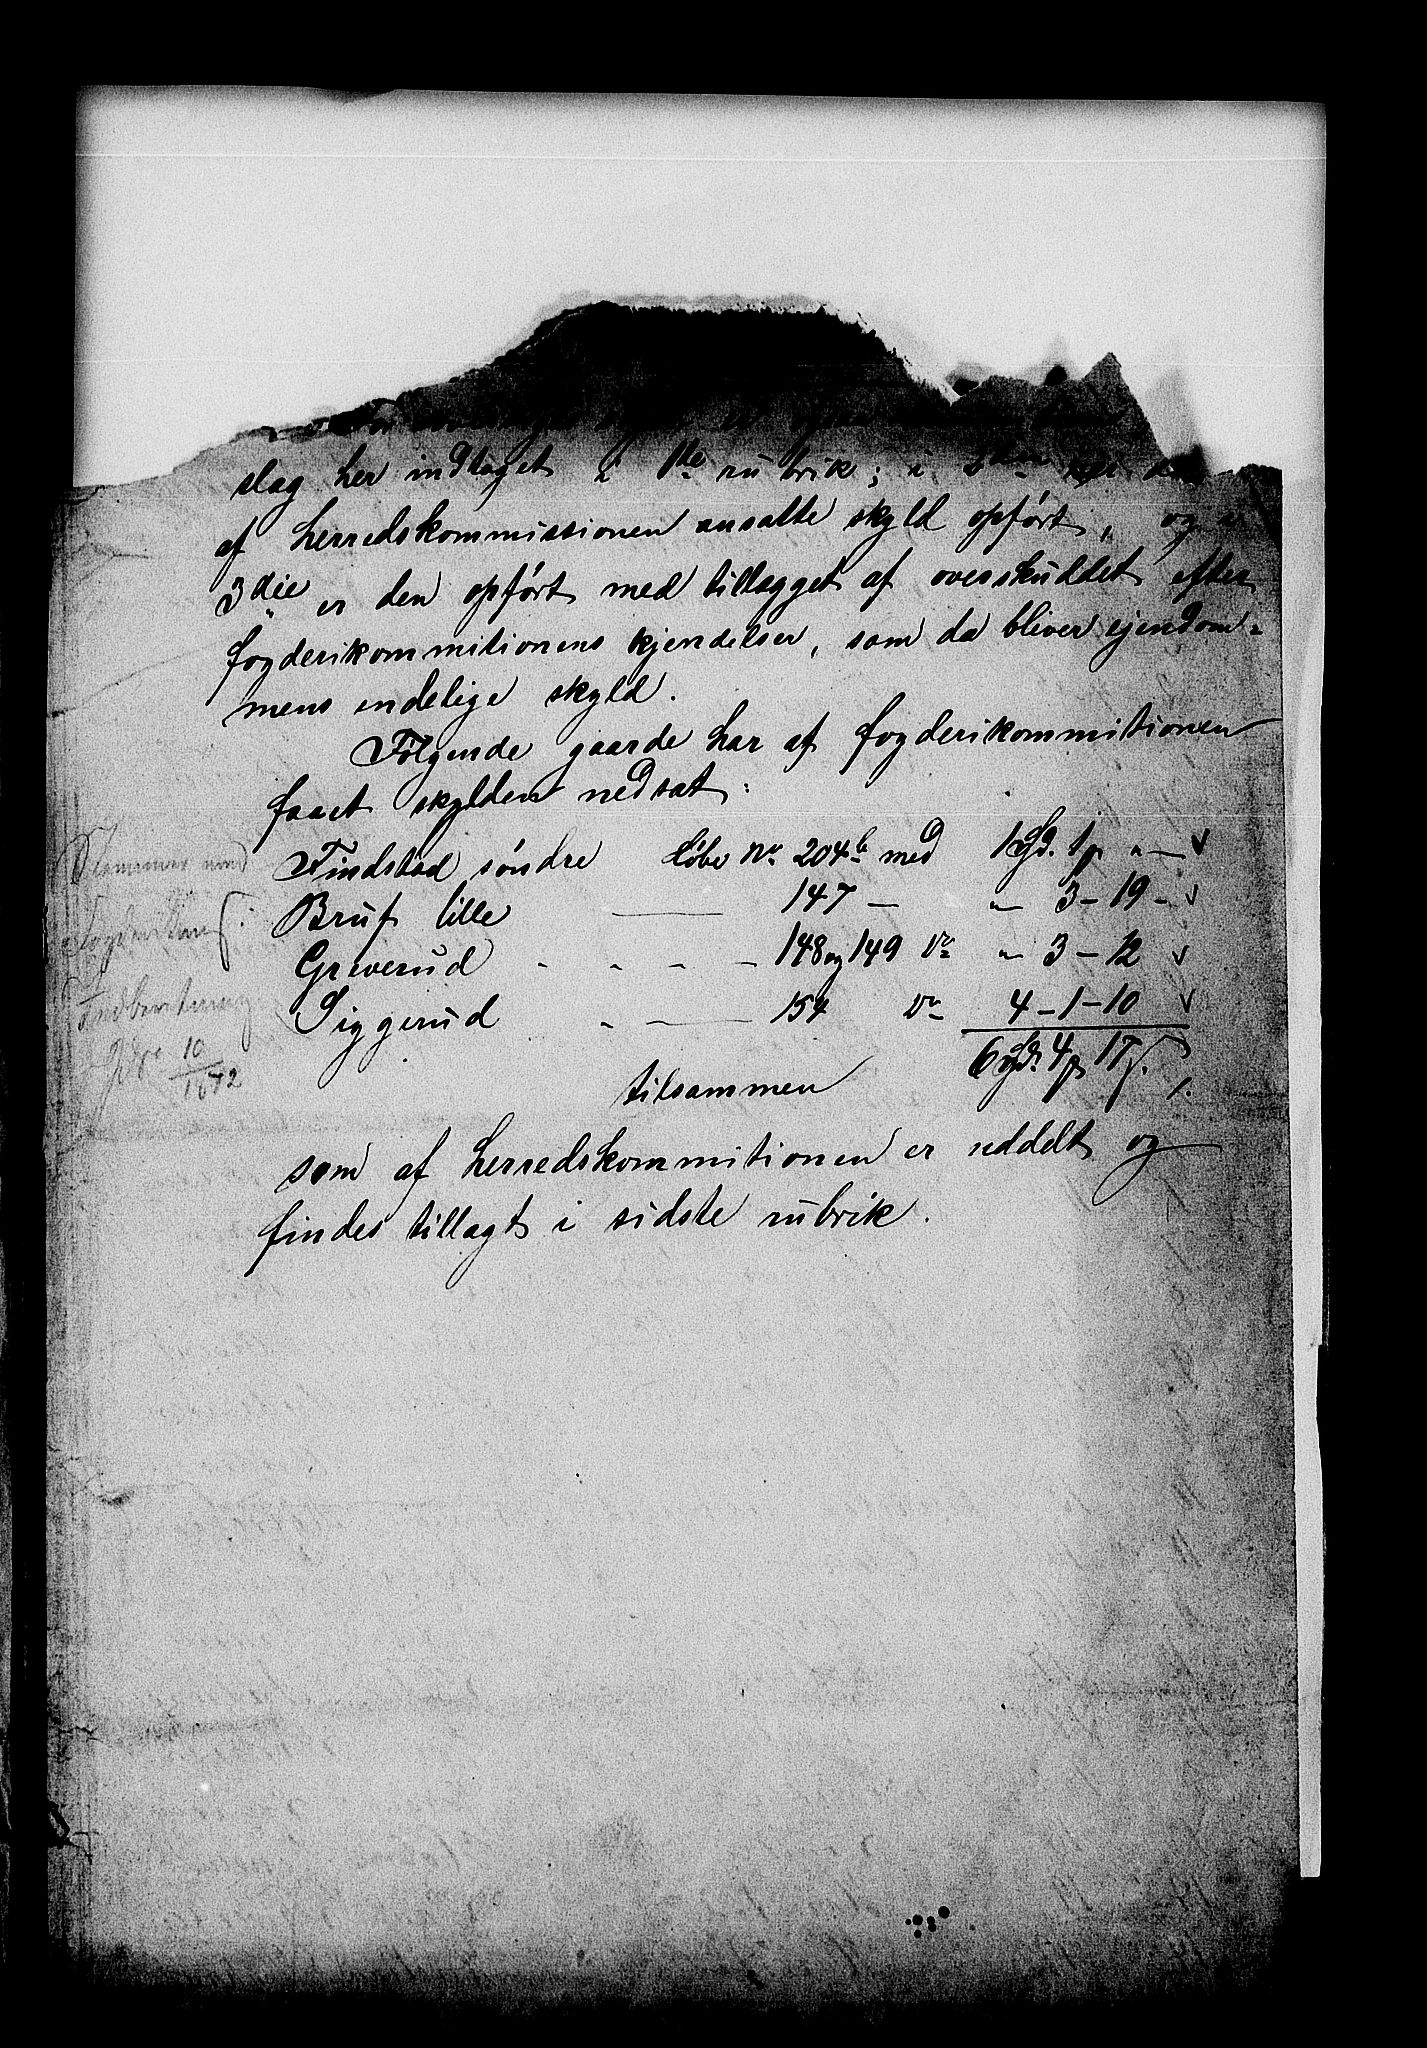 slag her indtaget i 1ste rubrik; i 2den er den
af herredskommissionen ansatte skyld opført, og i
3die er den opført med tillægget af overskuddet efter
fogderikommitionens kjendelser, som da bliver ejendom-
mens endelige skyld.
Følgende gaarde har af fogderikommitionen
faaet skylden nedsat:
Findstad søndre Løbe No 204b med 1 Spd. 1 „ —
Brus lille — 147 — „ 3 - 19 -
Greverud - - - - 148 og 149 Do „ 3 - 12
Siggerud - — 154 Do 4 - 1 - 10
tilsammen 6 Spd. 4 17
som af herredskommitionen er uddelt og
findes tillagt i sidste rubrik.
Stemmer med
fogderiets
Indberetning
10
1872